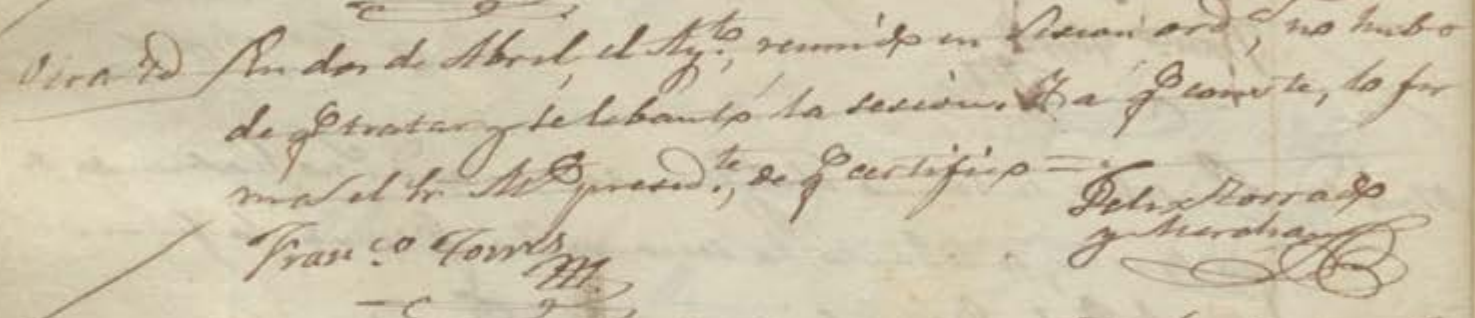 Otra id En dos de Abril, el Ayto, reunido en sesion ordª, no hubo
de q tratar y se lebantó la sesion. Y a q conste, lo fir
ma el Sr Alce presidte, de q certifico =
Felix Morrado
y
Franco Torres
M.